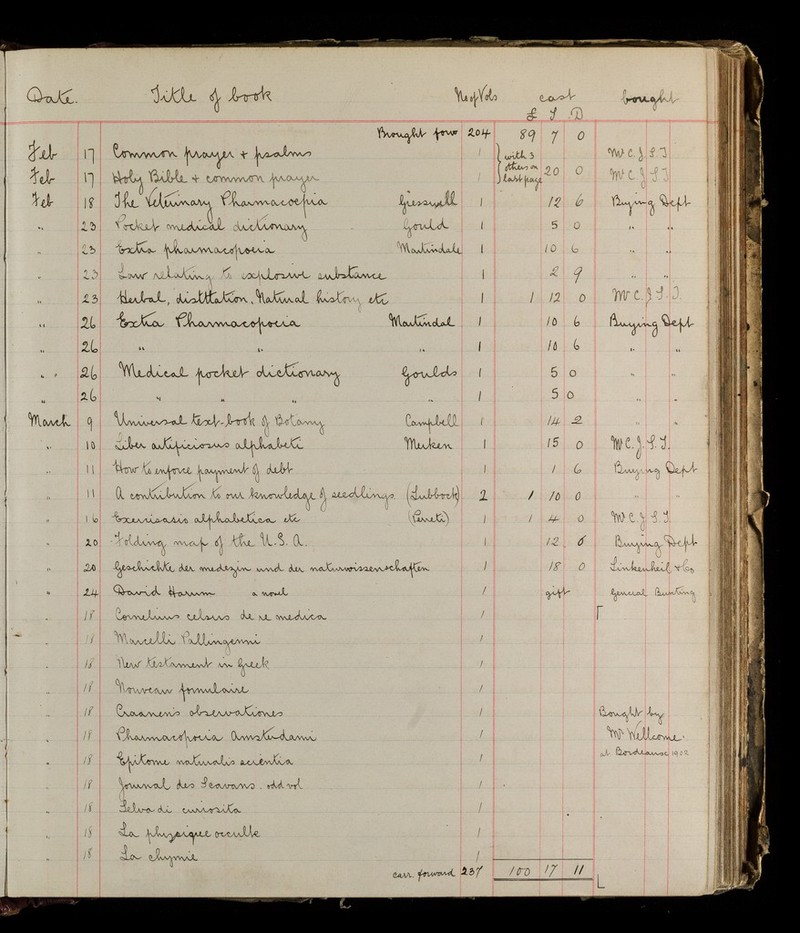 Date. Title of book No of Vols cost bought
£ S D
Brought forw 204 89 7 0
Feb 17 Common prayer + psalms 1 } with 3 Mr C. J. S. T
Feb 17 Holy Bible + common prayer others on last page 20 0 Mr C J S T
Feb 18 The Veterinary Pharmacocpoeia Gresswell 1 12 6 Buying Dept
" 23 Pocket medical dictionary Gould 1 5 0 " "
" 23 Extra pharmacopoeia Martindale 1 10 6 " "
" 23 Law relating to explosive substance 1 2 9 " "
" 23 Herbal, distltation, Natural history etc 1 1 12 0 Mr C. J S. T.
" 26 Extra Pharmacopoeia Martindal 1 10 6 Buying Dept
" 26 " " " 1 10 6 " "
" 26 Medical pocket dictionary Goulds 1 5 0 " "
" 26 " " " " 1 5 0 " "
March 9 Universal text-book of Botany Campbell 1 14 2 " "
" 10 Liber artificiosus alphabeti Merken 1 15 0 Mr C. J. S. T.
" 11 How to enforce payment of debt 1 1 6 Buying Dept
" 11 A contribution to our knowledge of seedlings (Lubbock) 2 1 10 0 " "
" 16 alphabetica etc 1 1 4 0 Mr C J S. T.
" 20 Folding map of the U.S.A. 1 12 6 Buying Dept
" 20 Geschichte der medezin und der naturwissenschaften 1 18 0 & Co
" 24 David Harum a novel 1 gift General Bunting
" 18 Cornelius celsus de re medica 1
" 18 Marcelli Pallingenni 1
" 18 New testament in Greek 1
" 18 Nouveau formulaire 1
" 18 Craanen's observationes 1 Bought by
" 18 Pharmacopoeia Amsterdami 1 Mr Wellcome.
" 18 Epitome naturalis scientia 1 at Bordeause 1902
" 18 Journal des Scavans. odd vol 1
" 18 Selva di curiosita 1
" 18 La physique occulte 1
" 18 La chymie 1
carr. forward 237 100 17 11